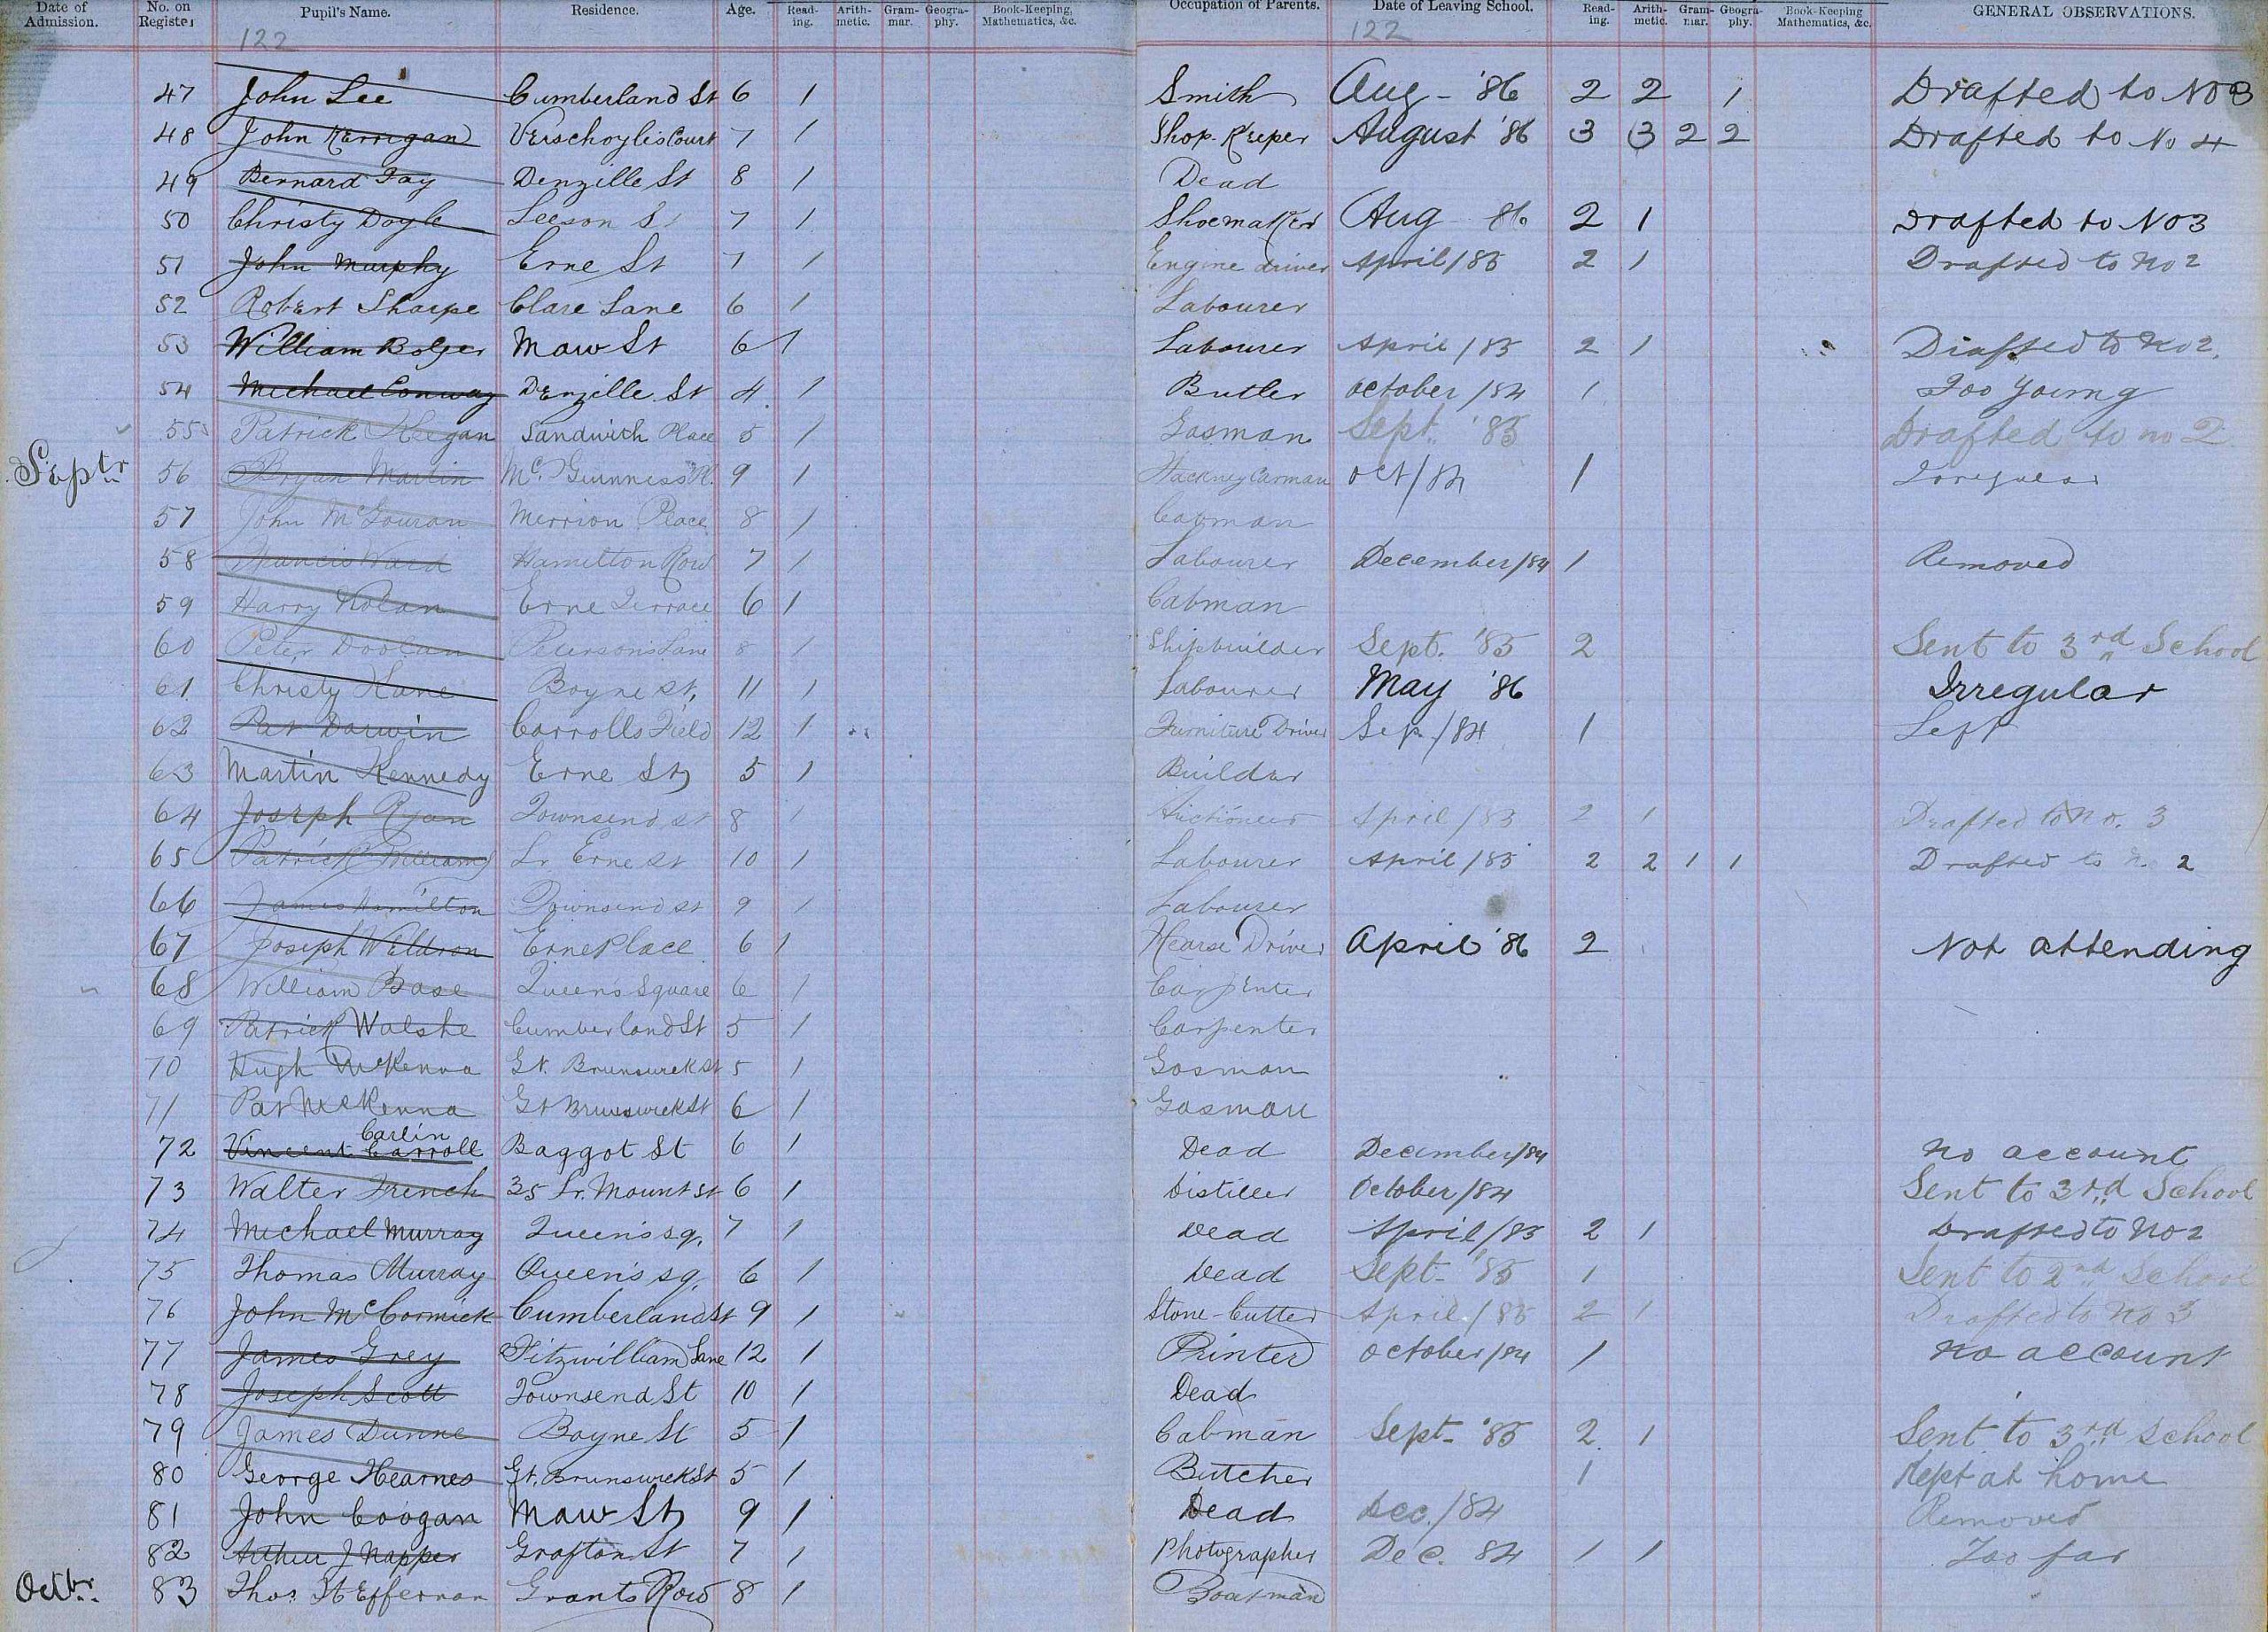 Date of Admission. No. on Register Pupil's Name. Residence. Age. Reading. Arithmetic. Grammar. Geography. Book-Keeping, Mathematics, &c. Occupation of Parents. Date of Leaving School. Reading. Arithmetic. Grammar. Geography. Book-Keeping Mathematics, &c. GENERAL OBSERVATIONS.
122 122
47 John Lee Cumberland St 6 1 Smith Aug - '86 2 2 1 Drafted to No 3
48 John Kerrigan Verschoyles Court 7 1 Shop-Keeper August '86 3 3 2 2 Drafted to No 4
49 Bernard Fay Denzille St 8 1 Dead
50 Christy Doyle Leeson St 7 1 Shoemaker Aug 86 2 1 Drafted to No 3
51 John Murphy Erne St 7 1 Engine driver April/85 2 1 Drafted to no 2
52 Robert Sharpe Clare Lane 6 1 Labourer
53 William Bolger Maw St 6 1 Labourer April/85 2 1 Drafted to no 2.
54 Michael Conway Denzille St 4 1 Butler October/84 1 Too young
55 Patrick Keegan Sandwith Place 5 1 Gasman Sept. '85 Drafted to no 2
Septr 56 Bryan Martin Mc Guinness Pl. 9 1 Hackney Carman Oct/84 1 Irregular
57 John McGouran Merrion Place 8 1 Cabman
58 Francis Ward Hamilton Row 7 1 Labourer December/84 1 Removed
59 Harry Nolan Erne Terrace 6 1 Cabman
60 Peter Doolan Petersons Lane 8 1 Shipbuilder Sept. '85 2 Sent to 3rd School
61 Christy Kane Boyne St, 11 1 Labourer May '86 Irregular
62 Pat Darwin Carrolls Field 12 1 Furniture Driver Sep/84 1 Left
63 Martin Kennedy Erne St 5 1 Builder
64 Joseph Ryan Townsend St 8 1 Auctioneer April/85 2 1 Drafted to No. 3
65 Patrick Williams Lr Erne St 10 1 Labourer April/85 2 2 1 1 Drafted to N. 2
66 James Hamilton Townsend St 9 1 Labourer
67 Joseph Weldron Erne Place 6 1 Hearse Driver April '86 2 Not attending
68 William Base Queens Square 6 1 Carpenter
69 Patrick Walshe Cumberland St 5 1 Carpenter
70 Hugh McKenna Gt. Brunswick St 5 1 Gasman
71 Pat McKenna Gt Brunswick St 6 1 Gasman
Carlin
72 Vincent Carroll Baggot St 6 1 Dead December/84 no account
73 Walter French 35 Lr. Mount St 6 1 Distiller October/84 Sent to 3rd School
74 Michael Murray Queen's sq. 7 1 Dead April/85 2 1 Drafted to No 2
75 Thomas Murray Queen's sq. 6 1 Dead Sept - '85 1 Sent to 2nd School
76 John McCormick Cumberland St 9 1 Stone-Cutter April/85 2 1 Drafted to No 3
77 James Grey Fitzwilliam Lane 12 1 Printer October/84 1 no account
78 Joseph Scott Townsend St 10 1 Dead
79 James Dunne Boyne St 5 1 Cabman Sept - '85 2 1 Sent to 3rd School
80 George Hearnes Gt. Brunswick St 5 1 Butcher 1 Kept at home
81 John Coogan Maw St 9 1 Dead Dec./84 Removed
82 Arthur J Napper Grafton St 7 1 Photographer Dec. 84 1 1 Too far
Octbr. 83 Thos. Heffernan Grants Row 8 1 Boatman